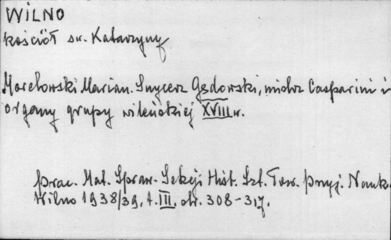 WILNO
kościół św. Katarzyny
Morelowski Marian. Snycerz Gędowski, mistrz Casparini i
organy grupy wileńskiej XVIII w.
Prac. Mat. Spraw. Sekcji Hist. Szt. Tow. Przyj. Nauk.
Wilno 1938/39, t. III, str. 308-317.